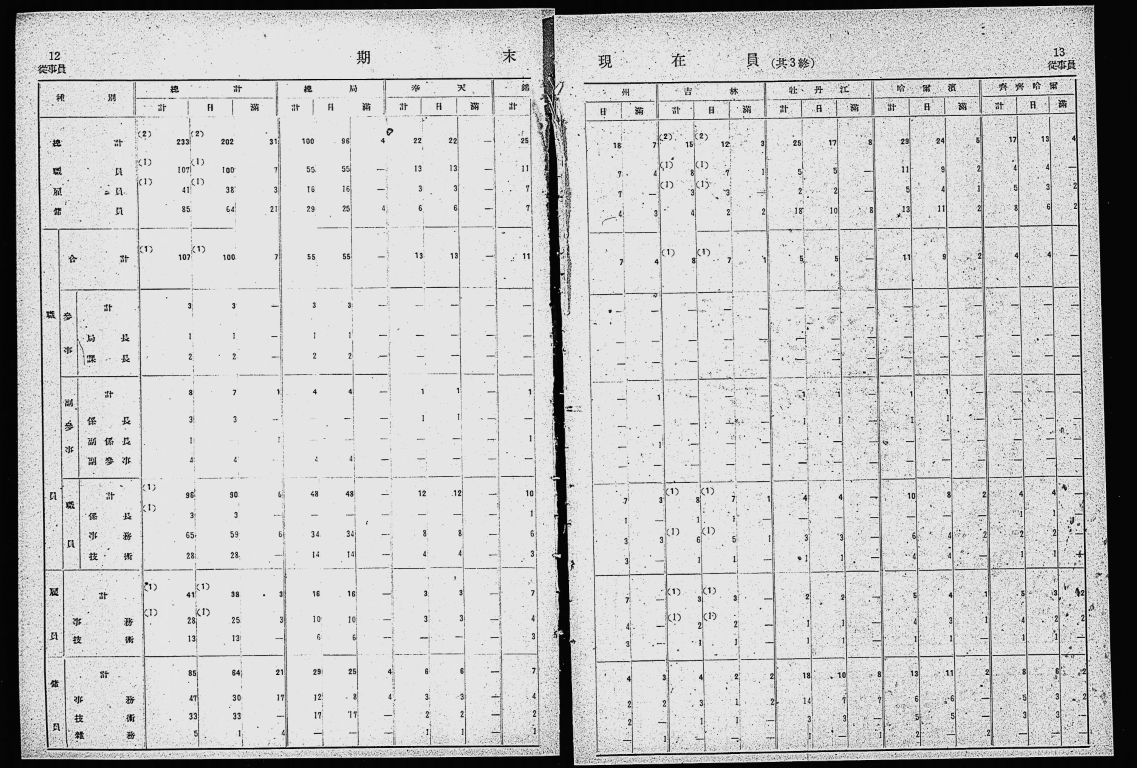 12
從事員
期 末
種 別 總 計 總 局 奉 天 錦
計 日 滿 計 日 滿 計 日 滿 計
總 計 (2) 233 (2) 202 31 100 96 4 22 22 — 25
職 員 (1) 107 (1) 100 7 55 55 — 13 13 — 11
雇 員 (1) 41 (1) 38 3 16 16 — 3 3 — 7
傭 員 85 64 21 29 25 4 6 6 — 7
職 員
合 計 (1) 107 (1) 100 7 55 55 — 13 13 — 11
參 事
計 3 3 — 3 3 — — — — —
局 長 1 1 — 1 1 — — — — —
課 長 2 2 — 2 2 — — — — —
副 參 事
計 8 7 1 4 4 — 1 1 — 1
係 長 3 3 — — — 1 1 —
副 係 長 1 1 — — — — — — 1
副 參 事 4 4 4 4 — — — —
職 員
計 (1) 96 90 6 48 48 — 12 12 — 10
係 長 (1) 3 3 — — — — — — — 1
事 務 65 59 6 34 34 — 8 8 — 6
技 術 28 28 — 14 14 — 4 4 — 3
雇 員
計 (1) 41 (1) 38 3 16 16 — 3 3 — 7
事 務 (1) 28 (1) 25 3 10 10 — 3 3 — 4
技 術 13 13 — 6 6 — — — — 3
傭 員
計 85 64 21 29 25 4 6 6 — 7
事 務 47 30 17 12 8 4 3 3 — 4
技 術 33 33 — 17 17 — 2 2 — 2
雜 務 5 1 4 — — — 1 1 — 1
13
從事員
現 在 員 (共3終)
州 吉 林 牡 丹 江 哈 爾 濱 齊 齊 哈 爾
日 滿 計 日 滿 計 日 滿 計 日 滿 計 日 滿
18 7 (2) 15 (2) 12 3 25 17 8 29 24 5 17 13 4
7 4 (1) 8 (1) 7 1 5 5 — 11 9 2 4 4 —
7 — (1) 3 (1) 3 — 2 2 — 5 4 1 5 3 2
4 3 4 2 2 18 10 8 13 11 2 8 6 2
7 4 (1) 8 (1) 7 1 5 5 — 11 9 2 4 4 —
— — — — — — — — — — — — — —
— — — — — — — — — — — — — —
— — — — — — — — — — — — — —
— 1 — — — 1 1 — 1 1 — — — —
— — — — — 1 1 — 1 1 — — — —
— 1 — — — — — — — — — — — —
— — — — — — — — — — — — — —
7 3 (1) 8 (1) 7 1 4 4 — 10 8 2 4 4 —
1 — 1 1 — — — — — — — 1 1 —
3 3 (1) 6 (1) 5 1 3 3 — 6 4 2 2 2 —
3 — 1 1 — 1 1 — 4 4 — 1 1 —
7 — (1) 3 (1) 3 — 2 2 — 5 4 1 5 3 2
4 — (1) 2 (1) 2 — 1 1 — 4 3 1 4 2 2
3 — 1 1 — 1 1 — 1 1 — 1 1 —
4 3 4 2 2 18 10 8 13 11 2 8 6 2
2 2 3 1 2 14 7 7 6 6 — 5 3 2
2 — 1 1 — 3 3 — 5 5 — 3 3 —
— 1 — — — 1 — 1 2 — 2 — — —